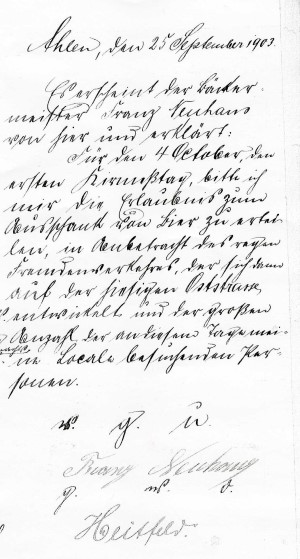 Ahlen, den 25 September 1903.
Es erscheint der Bäcker-
meister Franz Neuhaus
von hier und erklärt:
Für den 4 October, den
ersten Kirmeßtag, bitte ich
mir die Erlaubnis zum
Ausschank von Bier zu ertei-
len, in Anbetracht des regen
Fremdenverkehres, der sich dann
auf der hiesigen Oststrasse
entwickelt und der großen
Anzahl der an diesem Tage mei-
ne Locale besuchenden Per-
sonen.
v. g. u.
Franz Neuhaus
g. w. o.
Heitfeld.